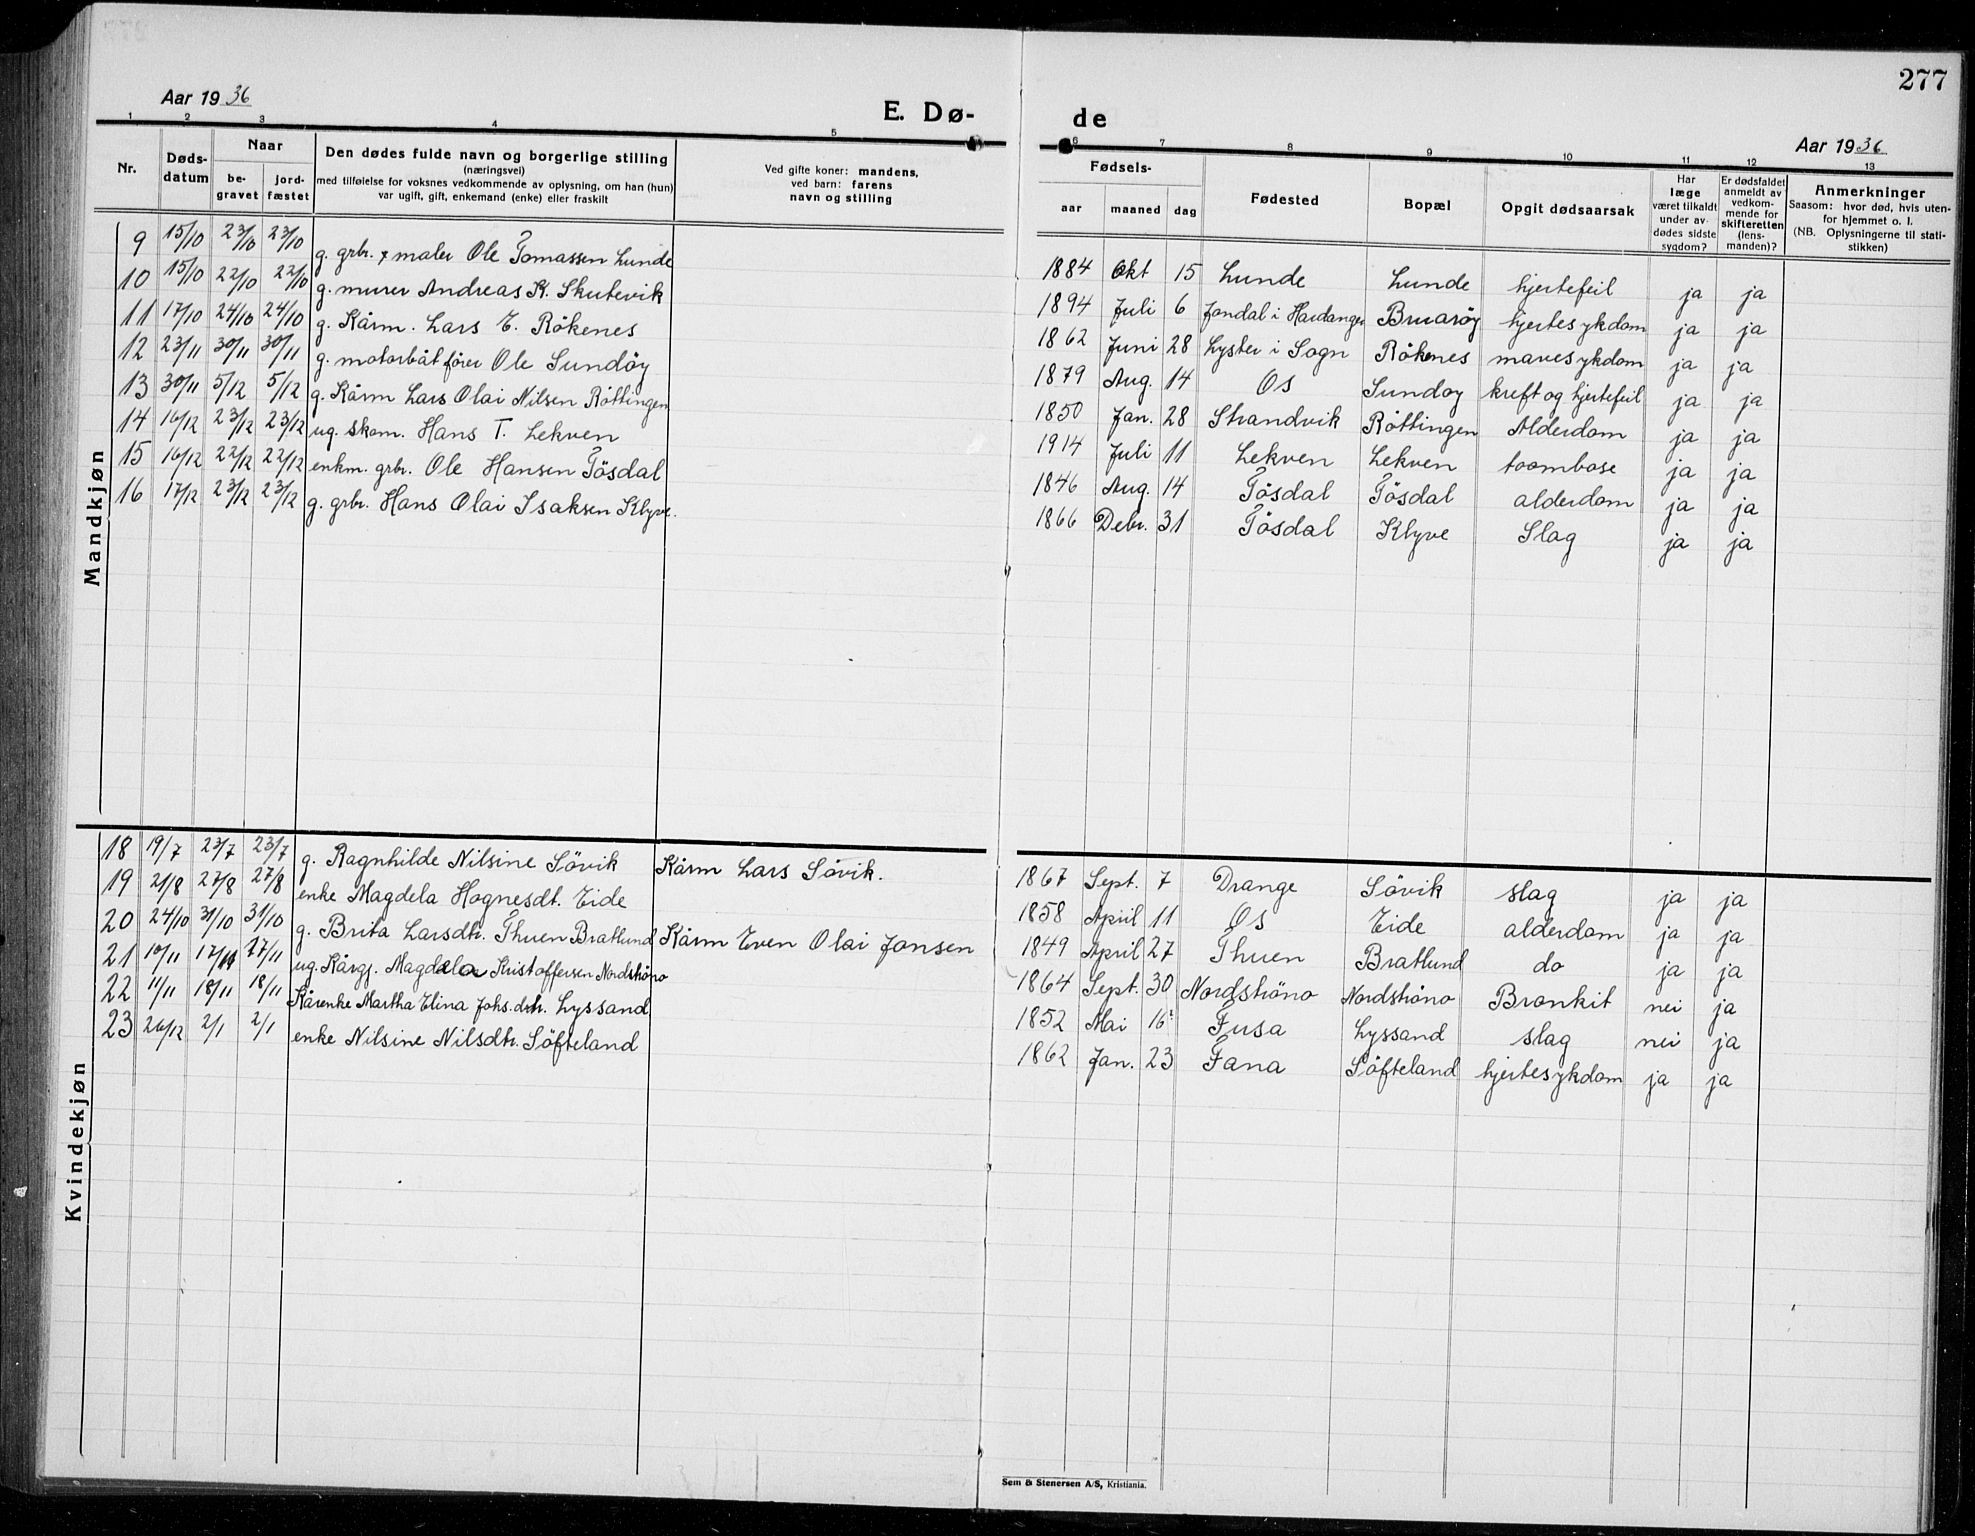 277
Aar 1936
E. Dø-
de
Aar 1936
1 2 3 4 5 6 7 8 9 10 11 12 13
Nr.
Døds-
datum
Naar
be-
gravet
jord-
fæstet
Den dødes fulde navn og borgerlige stilling
(næringsvei)
med tilføielse for voksnes vedkommende av oplysning, om han (hun)
var ugift, gift, enkemand (enke) eller fraskilt
Ved gifte koner: mandens,
ved barn: farens
navn og stilling
Fødsels-
aar maaned dag
Fødested
Bopæl
Opgit dødsaarsak
Har
læge
været tilkaldt
under av-
dødes sidste
sygdom?
Er dødsfaldet
anmeldt av
vedkom-
mende for
skifteretten
(lens-
manden)?
Anmerkninger
Saasom: hvor død, hvis uten-
for hjemmet o. l.
(NB. Oplysningerne til stati-
stikken)
Mandkjøn
9 15/10 23/10 23/10 g. grbr. x maler Ole Tomassen Lunde 1884 Okt 15 Lunde Lunde hjertefeil ja ja
10 15/10 22/10 22/10 g. murer Andreas K. Skutevik 1894 Juli 6 Jondal i Hardanger Bruarøy hjertesykdom ja ja
11 17/10 24/10 24/10 g. Kårm. Lars E. Røkenes 1862 Juni 28 Lyster i Sogn Røkenes mavesykdom ja ja
12 23/11 30/11 30/11 g. motorbåtfører Ole Sundøy 1879 Aug. 14 Os Sundøy kreft og hjertefeil ja ja
13 30/11 5/12 5/12 g. Kårm Lars Olai Nilsen Røttingen 1850 Jan. 28 Strandvik Røttingen Alderdom ja ja
14 16/12 23/12 23/12 ug. skom. Hans T. Lekven 1914 Juli 11 Lekven Lekven toombose ja ja
15 16/12 22/12 22/12 enkm. grbr. Ole Hansen Tøsdal 1846 Aug. 14 Tøsdal Tøsdal alderdom ja ja
16 17/12 23/12 23/12 g. grbr. Hans Olai Isaksen Klyve. 1866 Debr. 31 Tøsdal Klyve Slag ja ja
Kvindekjøn
18 19/7 23/7 23/7 g. Ragnhilde Nilsine Søvik Kårm Lars Søvik. 1867 Sept. 7 Drange Søvik slag ja ja
19 21/8 27/8 27/8 enke Magdela Hognesdt. Eide 1858 April 11 Os Eide alderdom ja ja
20 24/10 31/10 31/10 g. Brita Larsdtr. Thuen Bratlund Kårm Even Olai Jansen 1849 April 27 Thuen Bratlund do ja ja
21 10/11 17/11 17/11 ug. Kårgj. Magdela Kristoffersen Nordstrøno 1864 Sept. 30 Nordstrøno Nordstrøno Bronkit nei ja
22 11/11 18/11 18/11 Kårenke Martha Elina Johs.dtr. Lyssand 1852 Mai 16 Fusa Lyssand slag nei ja
23 26/12 2/1 2/1 enke Nilsine Nilsdtr. Søfteland 1862 Jan. 23 Fana Søfteland hjertesykdom ja ja
Sem & Stenersen A/S, Kristiania.